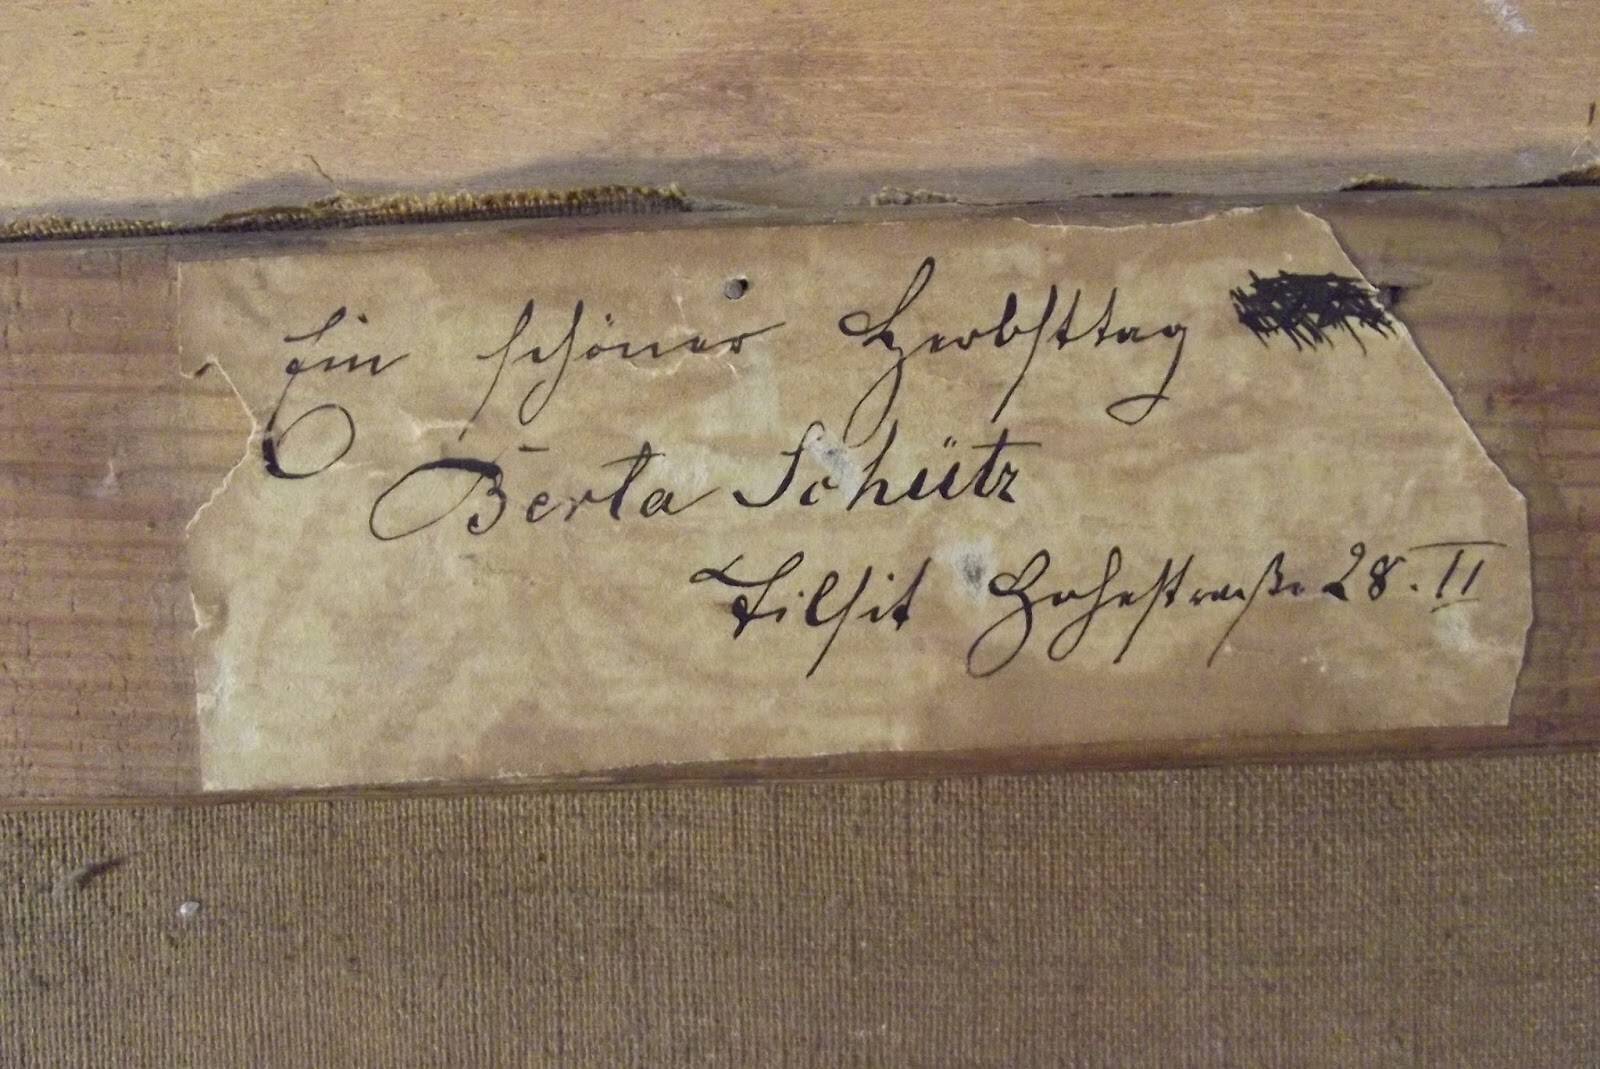 Ein schöner Herbsttag
Berta Schütz
Tilsit Hohestraße 28. II